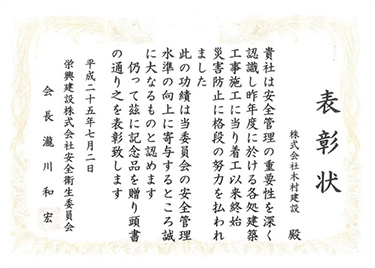 表彰状
株式会社木村建設 殿
貴社は安全管理の重要性を深く
認識し昨年度に於ける各処建築
工事施工に当り着工以来終始
災害防止に格段の努力を払われ
ました
此の功績は当委員会の安全管理
水準の向上に寄与するところ誠
に大なるものと認めます
仍って茲に記念品を贈り頭書
の通り之を表彰致します
平成二十五年七月二日
栄興建設株式会社安全衛生委員会
会長瀧川和宏